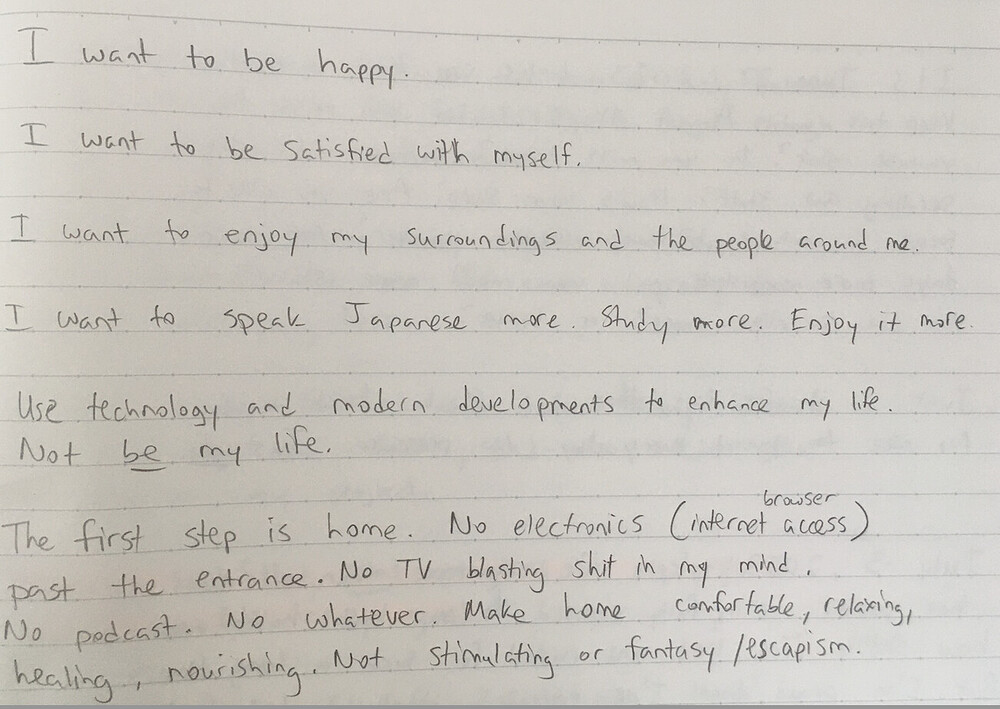 I want to be happy.
I want to be satisfied with myself.
I want to enjoy my surroundings and the people around me.
I want to speak Japanese more. Study more. Enjoy it more.
Use technology and modern developments to enhance my life.
Not be my life.
browser
The first step is home. No electronics (internet access)
past the entrance. No TV blasting shit in my mind.
No podcast. No whatever. Make home comfortable, relaxing,
healing, nourishing. Not stimulating or fantasy/escapism.